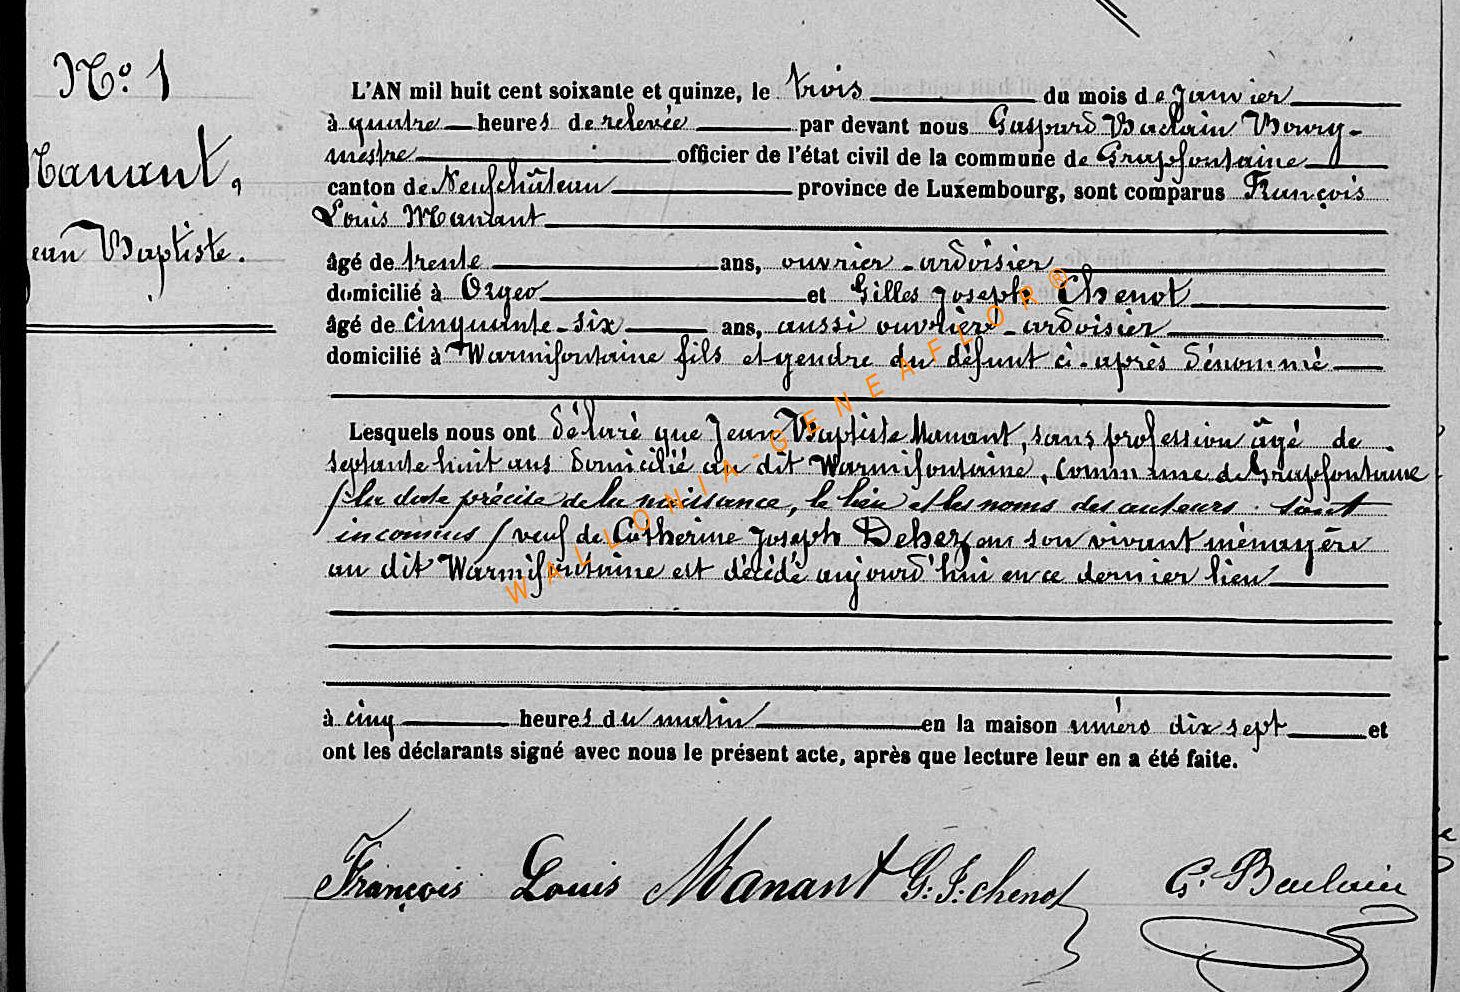 N° 1
Manant,
Jean Baptiste.
L'AN mil huit cent soixante et quinze, le trois du mois de Janvier
à quatre heures de relevée par devant nous Gaspard Baclain Bourg-
mestre officier de l'état civil de la commune de Grapfontaine
canton de Neufchâteau province de Luxembourg, sont comparus François
Louis Manant
âgé de trente ans, ouvrier-ardoisier
domicilié à Orgeo et Gilles Joseph Chenot
âgé de cinquante-six ans, aussi ouvrier-ardoisier
domicilié à Warmifontaine fils et gendre du défunt ci-après dénommé
Lesquels nous ont déclaré que Jean Baptiste Manant, sans profession âgé de
septante huit ans domicilié au dit Warmifontaine, commune de Grapfontaine
(la date précise de la naissance, le lieu et les noms des auteurs sont
inconnus) veuf de Catherine Joseph Dehez en son vivant ménagère
au dit Warmifontaine est décédé aujourd'hui en ce dernier lieu
à cinq heures du matin en la maison numéro dix sept et
ont les déclarants signé avec nous le présent acte, après que lecture leur en a été faite.
François Louis Manant G. J. Chenot G. Baclain
WALLONIA-GENEAFLOR®